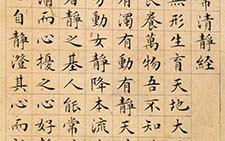 常清靜經
無形生育天地大
長養萬物吾不知
有濁有動有靜天
動女靜降本流
靜之基人能常
而心擾之心好
自靜澄其心而